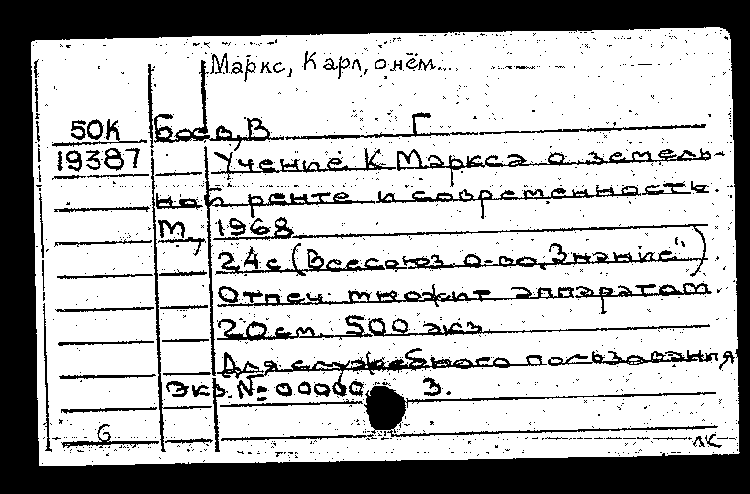 Маркс, Карл, о нём...
50К Боев, В Г
19387 Учение К Маркса о земель-
ной ренте и современность.
М, 1968
24с (Всесоюз о-во „Знание")
Отпеч множит аппаратом.
20см. 500 экз
Для служебного пользования
Экз. № 00000 3.
6 лк